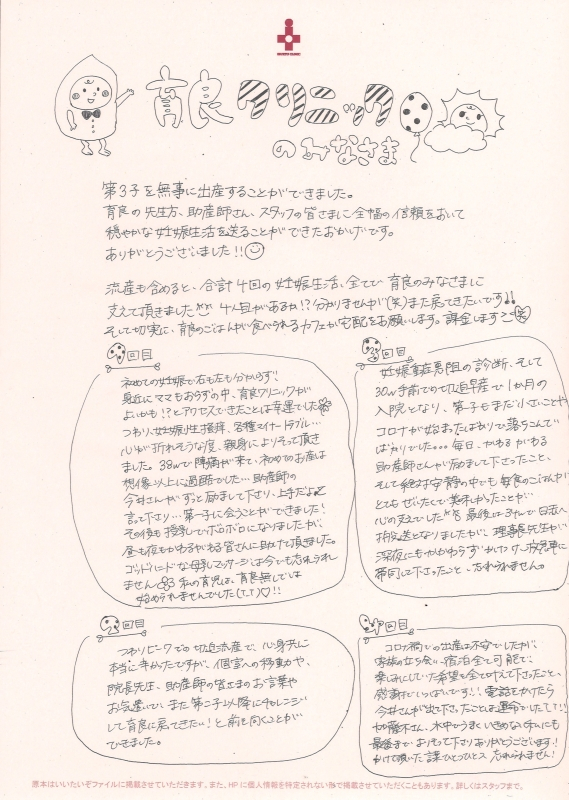 育良クリニック
のみなさま
第3子を無事に出産することができました。
育良の先生方、助産師さん、スタッフの皆さまに全幅の信頼をおいて
穏やかな妊娠生活を送ることができたおかげです。
ありがとうございました!!
流産も含めると、合計4回の妊娠生活、全てで育良のみなさまに
支えて頂きました 4人目があるか!?分かりませんが(笑)また戻ってきたいです!!
そして切実に、育良のごはんが食べられるカフェか宅配をお願いします。課金します
1回目
初めての妊娠で右も左も分からず!
身近にママもおらずの中、育良クリニックが
よいかも!?とアクセスできたことは幸運でした
つわり、妊娠性掻痒、各種マイナートラブル…
心が折れそうな度、親身によりそって頂き
ました。38wで陣痛が来て、初めてのお産は
想像以上に過酷でした…助産師の
今井さんがずっと励まして下さり、上手だよ
言って下さり…第一子に会うことができました!
その後も授乳でボロボロになりましたが、
昼も夜もかわるがわる皆さんに助けて頂きました。
ゴッドハンドな母乳マッサージは今でも忘れられ
ません 私の育児は、育良無しでは
始められませんでした(T.T)♡!!
2回目
つわりピークでの切迫流産で、心身共に
本当に辛かったですが、個室への移動や、
院長先生、助産師の皆さまのお言葉や
お気遣いで、また第二子以降にチャレンジ
して育良に戻ってきたい!と前を向くことが
できました。
3回目
妊娠重症悪阻の診断、そして
30w手前での切迫早産で1か月の
入院となり、第一子もまだ小さいことや
コロナが始まったばかりで落ちこんで
ばかりでした…。毎日、かわるがわる
助産師さんが励まして下さったこと、
そして絶対安静の中でも毎食のごはんが
とてもぜいたくで美味しかったことが
心の支えでした 最後は34wで日医へ
搬送となりましたが、理事長先生が
深夜にもかかわらずかけつけ、救急車に
帯同して下さったこと、忘れられません。
4回目
コロナ禍での出産は不安でしたが、
家族の立ち会い、宿泊全て可能で、
楽しみにしていた希望を全て叶えて下さったこと、
感謝でいっぱいです!!電話をかけたら
今井さんが出て下さったことは運命でした!!!
加藤さん、水中でうまくいきめない私にも
最後まで 下さりありがとうございます!
かけて頂いた言葉ひとつひとつ忘れられません!
原本はいいたいぞファイルに掲載させていただきます。また、HPに個人情報を特定されない形で掲載させていただくこともあります。詳しくはスタッフまで。